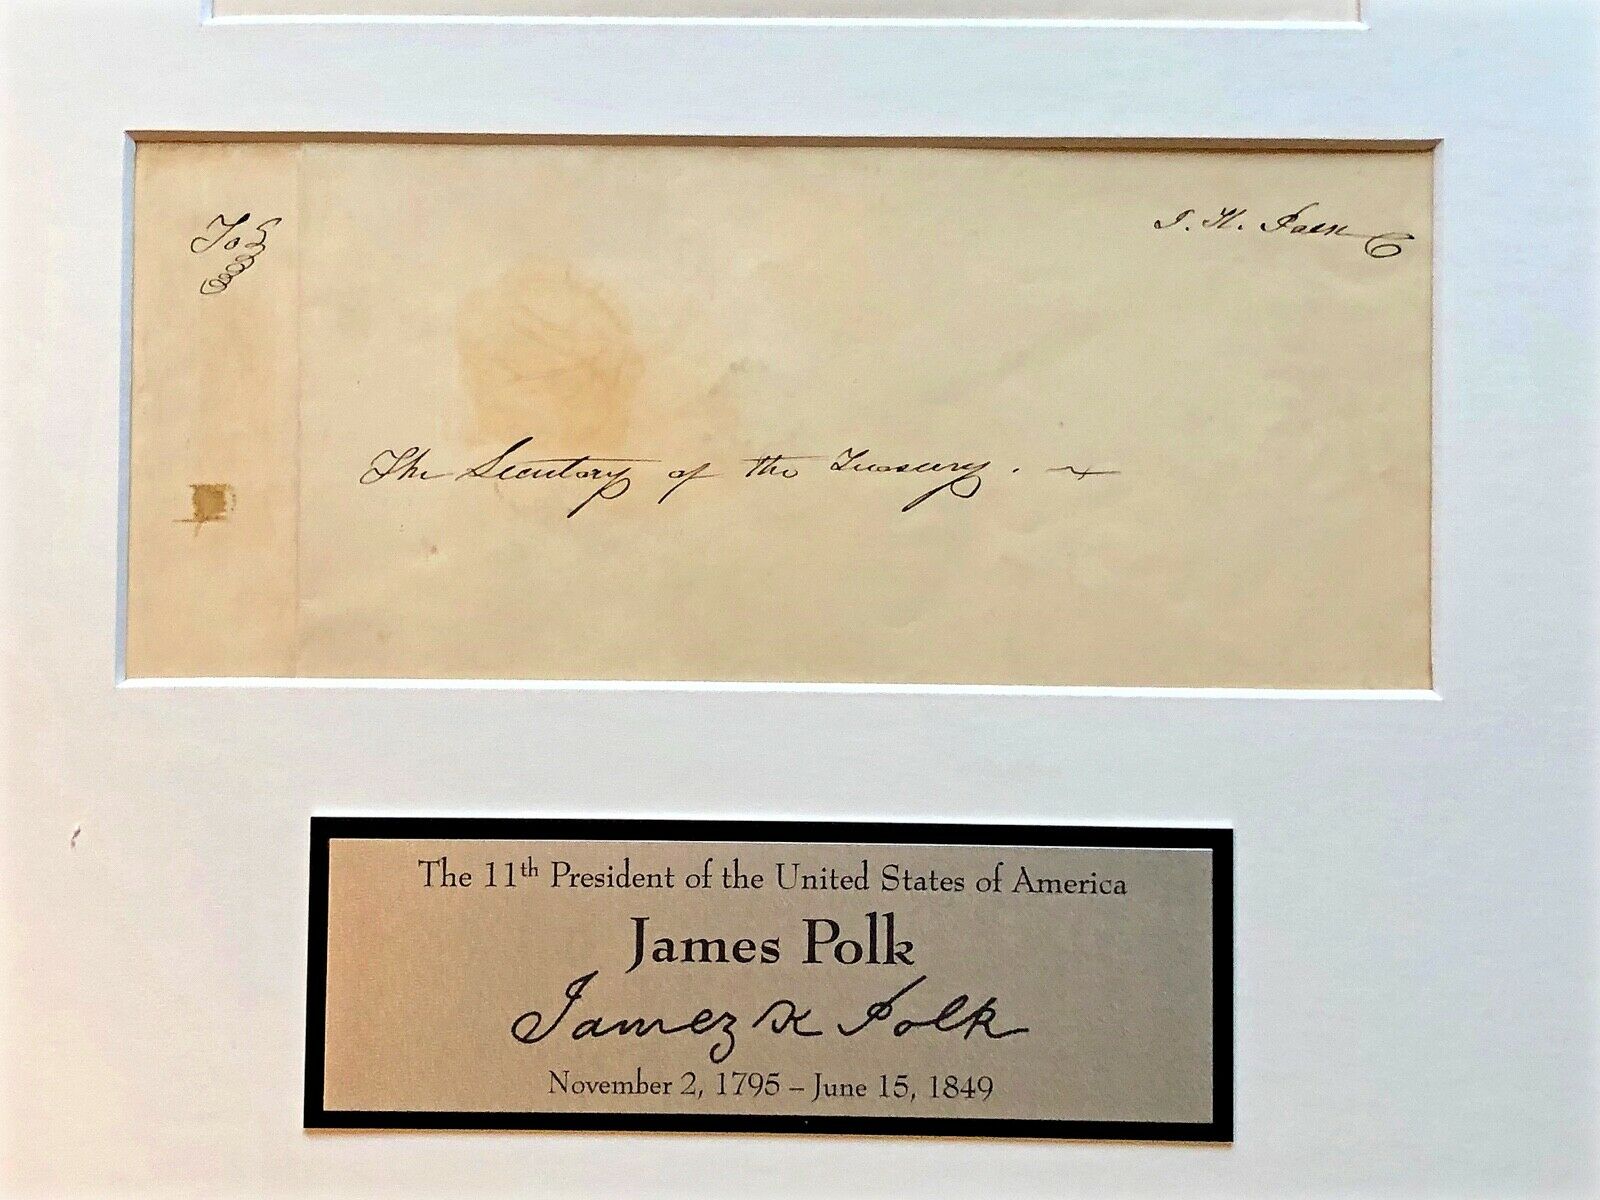 To
J. K. Polk
The Secretary of the Treasury.
The 11th President of the United States of America
James Polk
James K Polk
November 2, 1795 – June 15, 1849